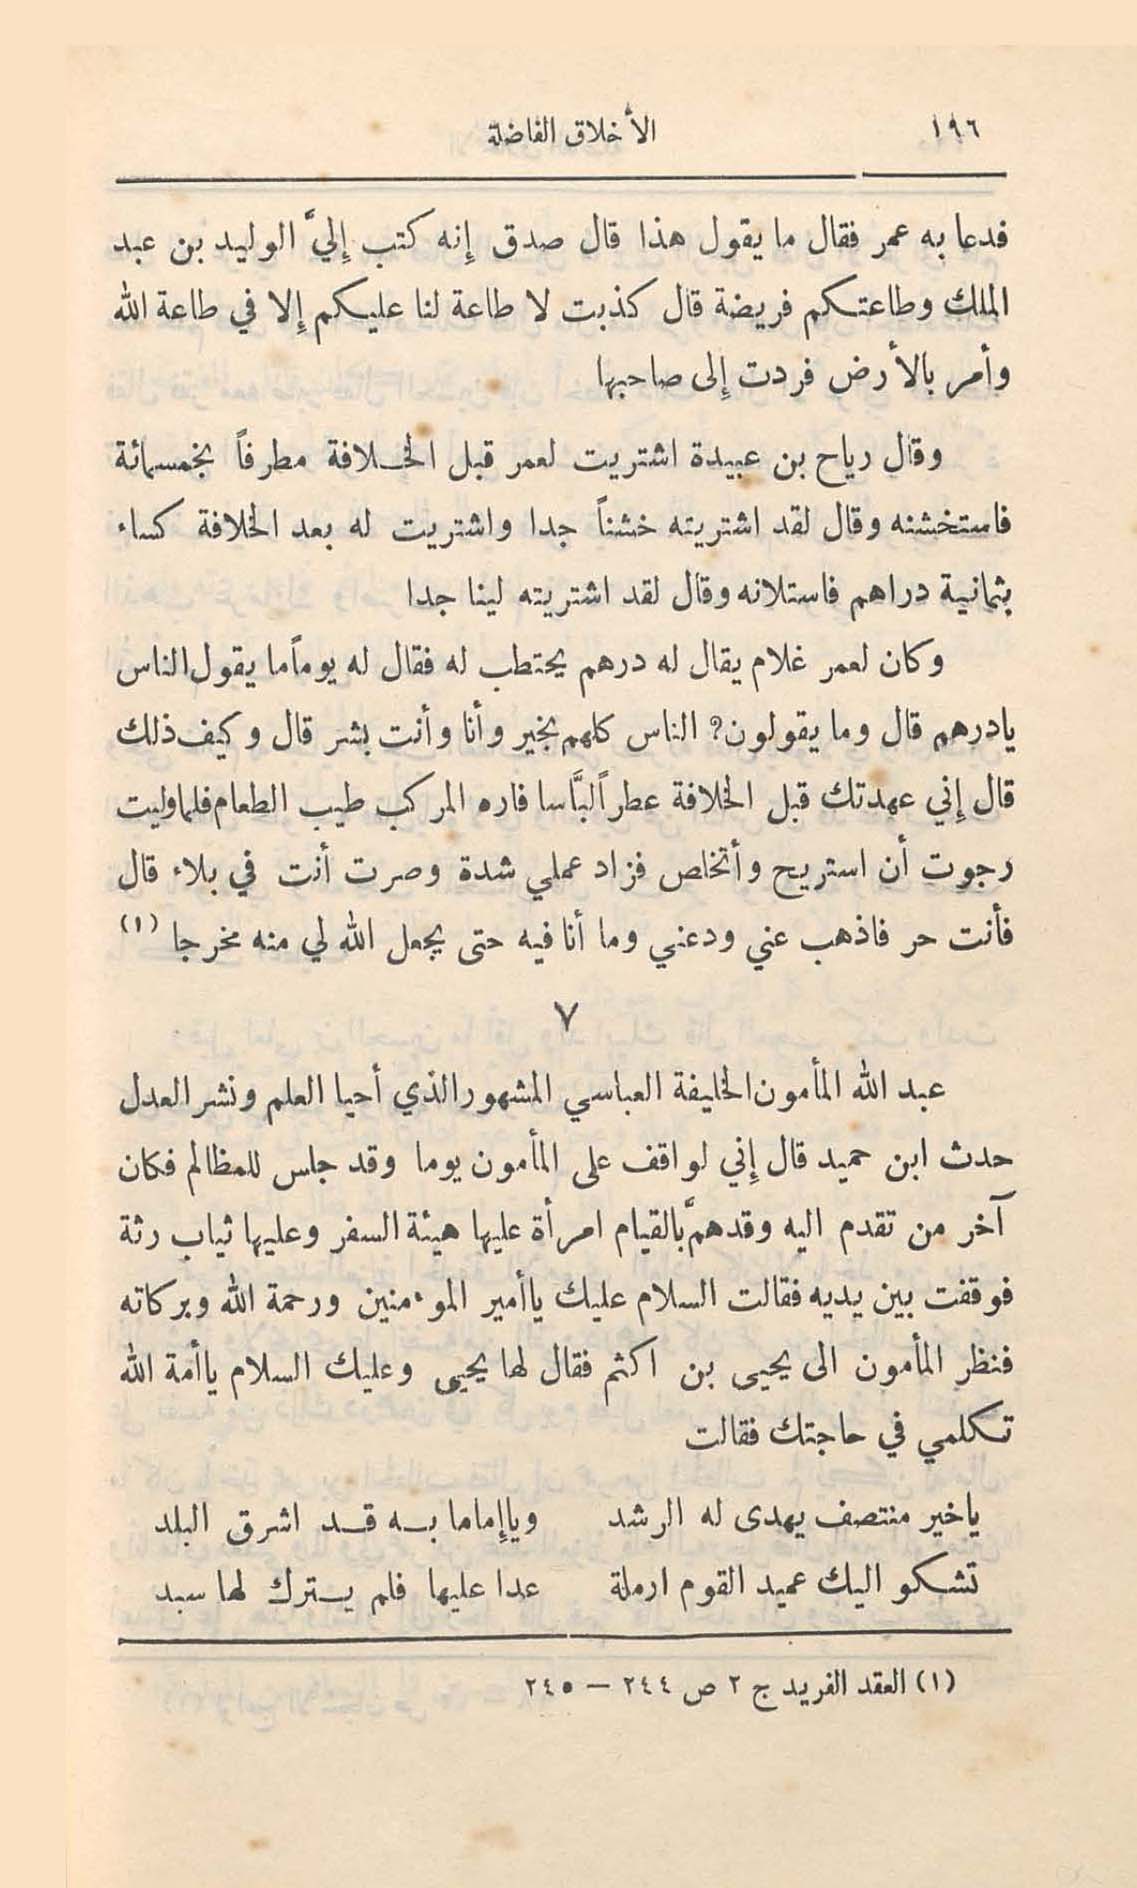 ١٩٦ الأخلاق الفاضلة
فدعا به عمر فقال ما يقول هذا قال صدق إنه كتب إليَّ الوليد بن عبد
الملك وطاعتكم فريضة قال كذبت لا طاعة لنا عليكم إلا في طاعة الله
وأمر بالأرض فردت إلى صاحبها
وقال رياح بن عبيدة اشتريت لعمر قبل الخلافة مطرفاً بخمسمائة
فاستخشنه وقال لقد اشتريته خشناً جدا واشتريت له بعد الخلافة كساء
بثمانية دراهم فاستلانه وقال لقد اشتريته لينا جدا
وكان لعمر غلام يقال له درهم يحتطب له فقال له يوماً ما يقول الناس
يادرهم قال وما يقولون؟ الناس كلهم بخير وأنا وأنت بشر قال وكيف ذلك
قال إني عهدتك قبل الخلافة عطراً لبَّاسا فاره المركب طيب الطعام فلما وليت
رجوت أن استريح وأتخلص فزاد عملي شدة وصرت أنت في بلاء قال
فأنت حر فاذهب عني ودعني وما أنا فيه حتى يجعل الله لي منه مخرجا (١)
٧
عبد الله المأمون الخليفة العباسي المشهور الذي أحيا العلم ونشر العدل
حدث ابن حميد قال إني لواقف على المأمون يوما وقد جلس للمظالم فكان
آخر من تقدم اليه وقد همَّ بالقيام امرأة عليها هيئة السفر وعليها ثياب رثة
فوقفت بين يديه فقالت السلام عليك ياأمير الموءمنين ورحمة الله وبركاته
فنظر المأمون الى يحيى بن اكثم فقال لها يحيى وعليك السلام ياأمة الله
تكلمي في حاجتك فقالت
ياخير منتصف يهدى له الرشد وياإماما به قد اشرق البلد
تشكو اليك عميد القوم ارملة عدا عليها فلم يترك لها سبد
(١) العقد الفريد ج ٢ ص ٢٤٤ – ٢٤٥